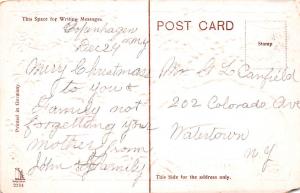 This Space for Writing Messages.
POST CARD
Stamp
Copenhagen
NY
Dec 24
Merry Christmas
to you &
Family not
forgetting your
mother from
John & Family
Mr G L Canfield
202 Colorado Ave
Watertown
NY
Printed in Germany.
2234
This Side for the address only.